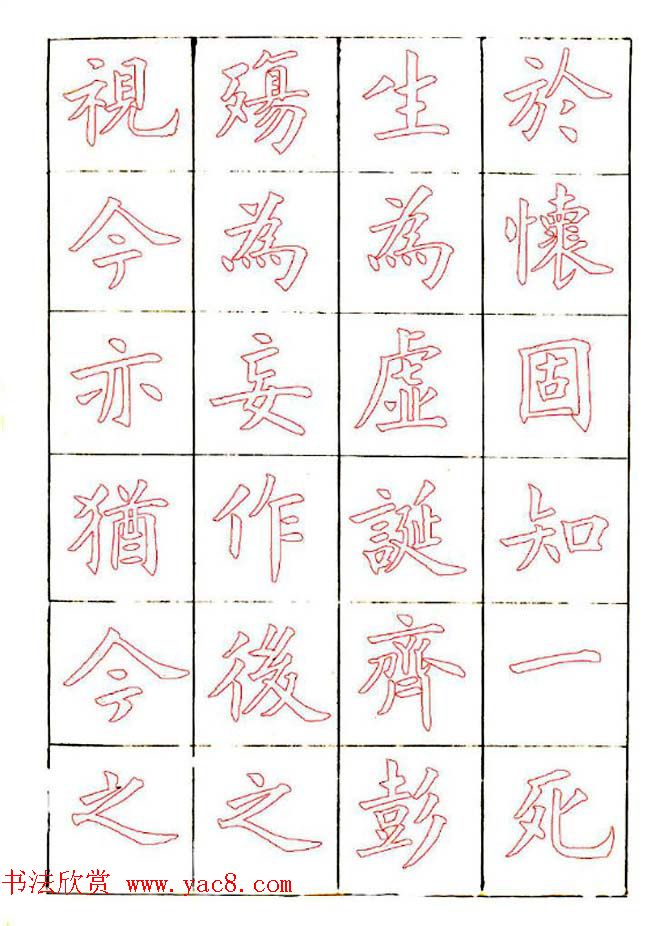 於懷固知一死
生為虛誕齊彭
殤為妄作後之
視今亦猶今之
书法欣赏 www.yac8.com